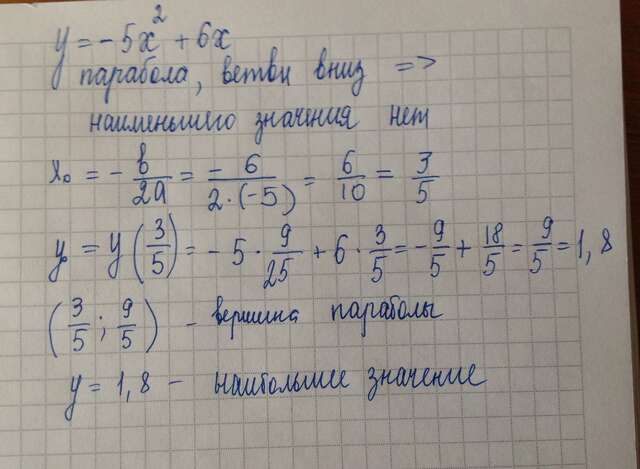 y = -5x² + 6x
парабола, ветви вниз =>
наименьшего значения нет
x₀ = - в/2a = -6/2·(-5) = 6/10 = 3/5
y₀ = y(3/5) = -5 · 9/25 + 6 · 3/5 = -9/5 + 18/5 = 9/5 = 1,8
(3/5 ; 9/5) - вершина параболы
y = 1,8 - наибольшее значение